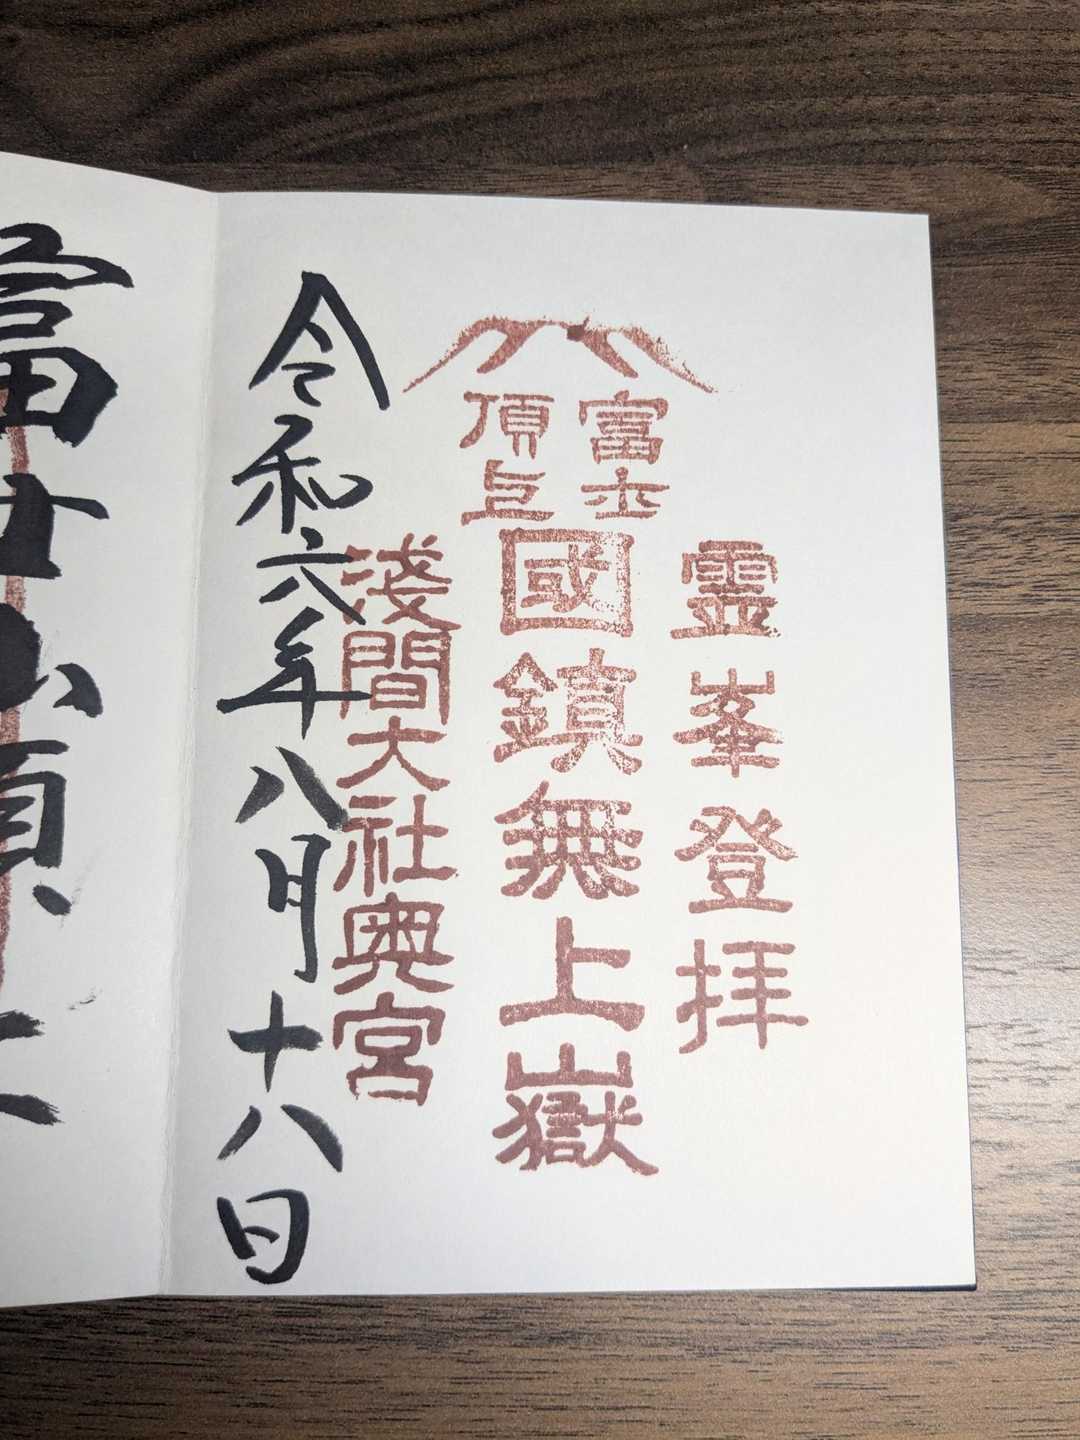 霊峯登拝
富士
頂上
國鎮無上嶽
浅間大社奥宮
令和六年八月十八日
富士山頂上